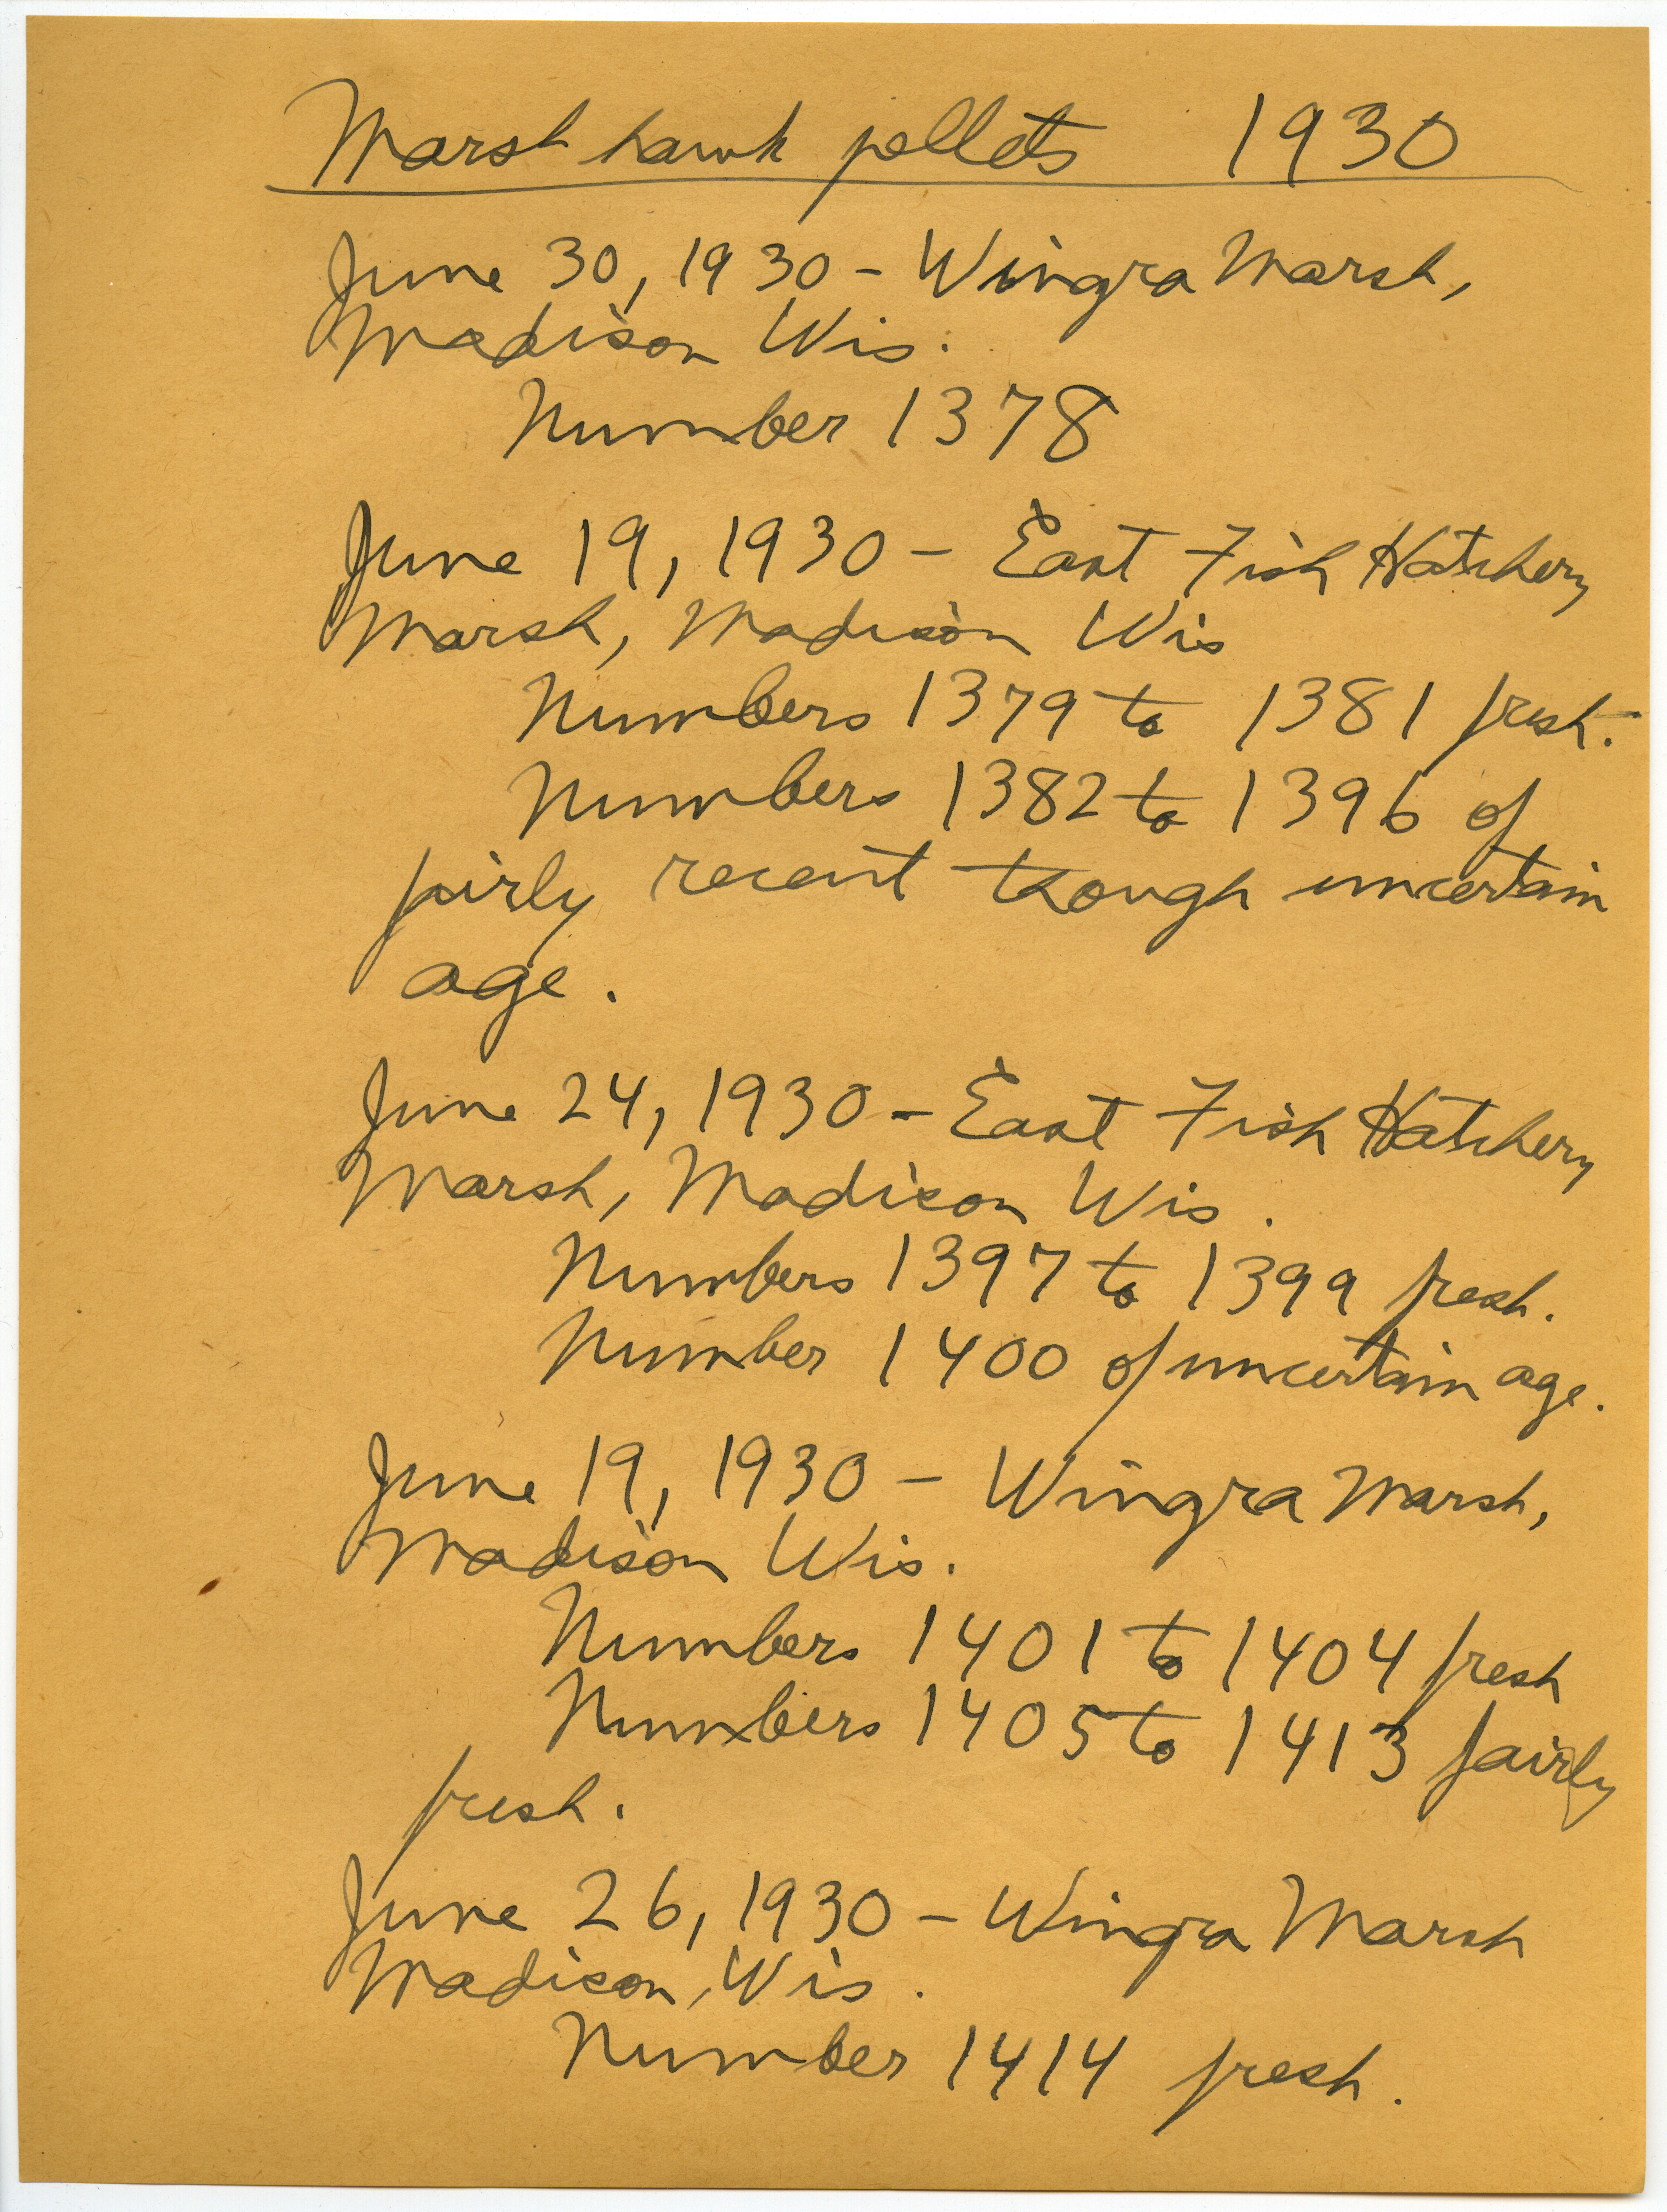 Marsh hawk pellets 1930
June 30, 1930 - Wingra Marsh,
Madison Wis.
Number 1378
June 19, 1930 - East Fish Hatchery
Marsh, Madison Wis
Numbers 1379 to 1381 fresh.
Numbers 1382 to 1396 of
fairly recent though uncertain
age.
June 24, 1930 - East Fish Hatchery
Marsh, Madison Wis.
Numbers 1397 to 1399 fresh.
Number 1400 of uncertain age.
June 19, 1930 - Wingra Marsh,
Madison Wis.
Numbers 1401 to 1404 fresh
Numbers 1405 to 1413 fairly
fresh.
June 26, 1930 - Wingra Marsh
Madison, Wis.
Number 1414 fresh.